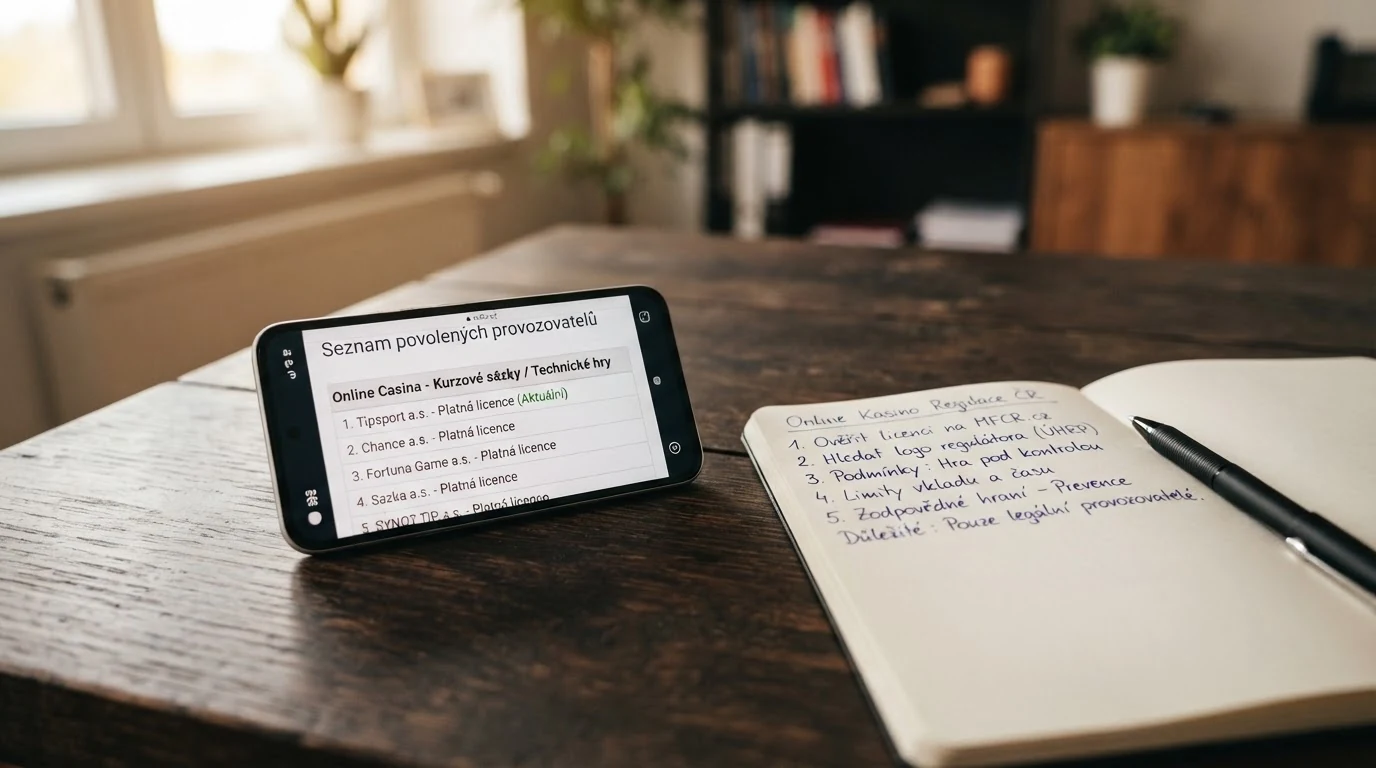 Seznam povolených provozovatelů
Online Casina - Kurzové sázky / Technické hry
1. Tipsport a.s. - Platná licence (Aktuální)
2. Chance a.s. - Platná licence
3. Fortuna Game a.s. - Platná licence
4. Sazka a.s. - Platná licence
5. SYNOT TIP a.s. - Platná licence
Online Kasino Regulace ČR
1. Ověřit licenci na MFCR.cz
2. Hledat logo regulátora
3. Podmínky: Hra pod kontrolou
4. Limity vkladu a času
5. Zodpovědné hraní - Prevence
Důležité: Pouze legální provozovatelé.